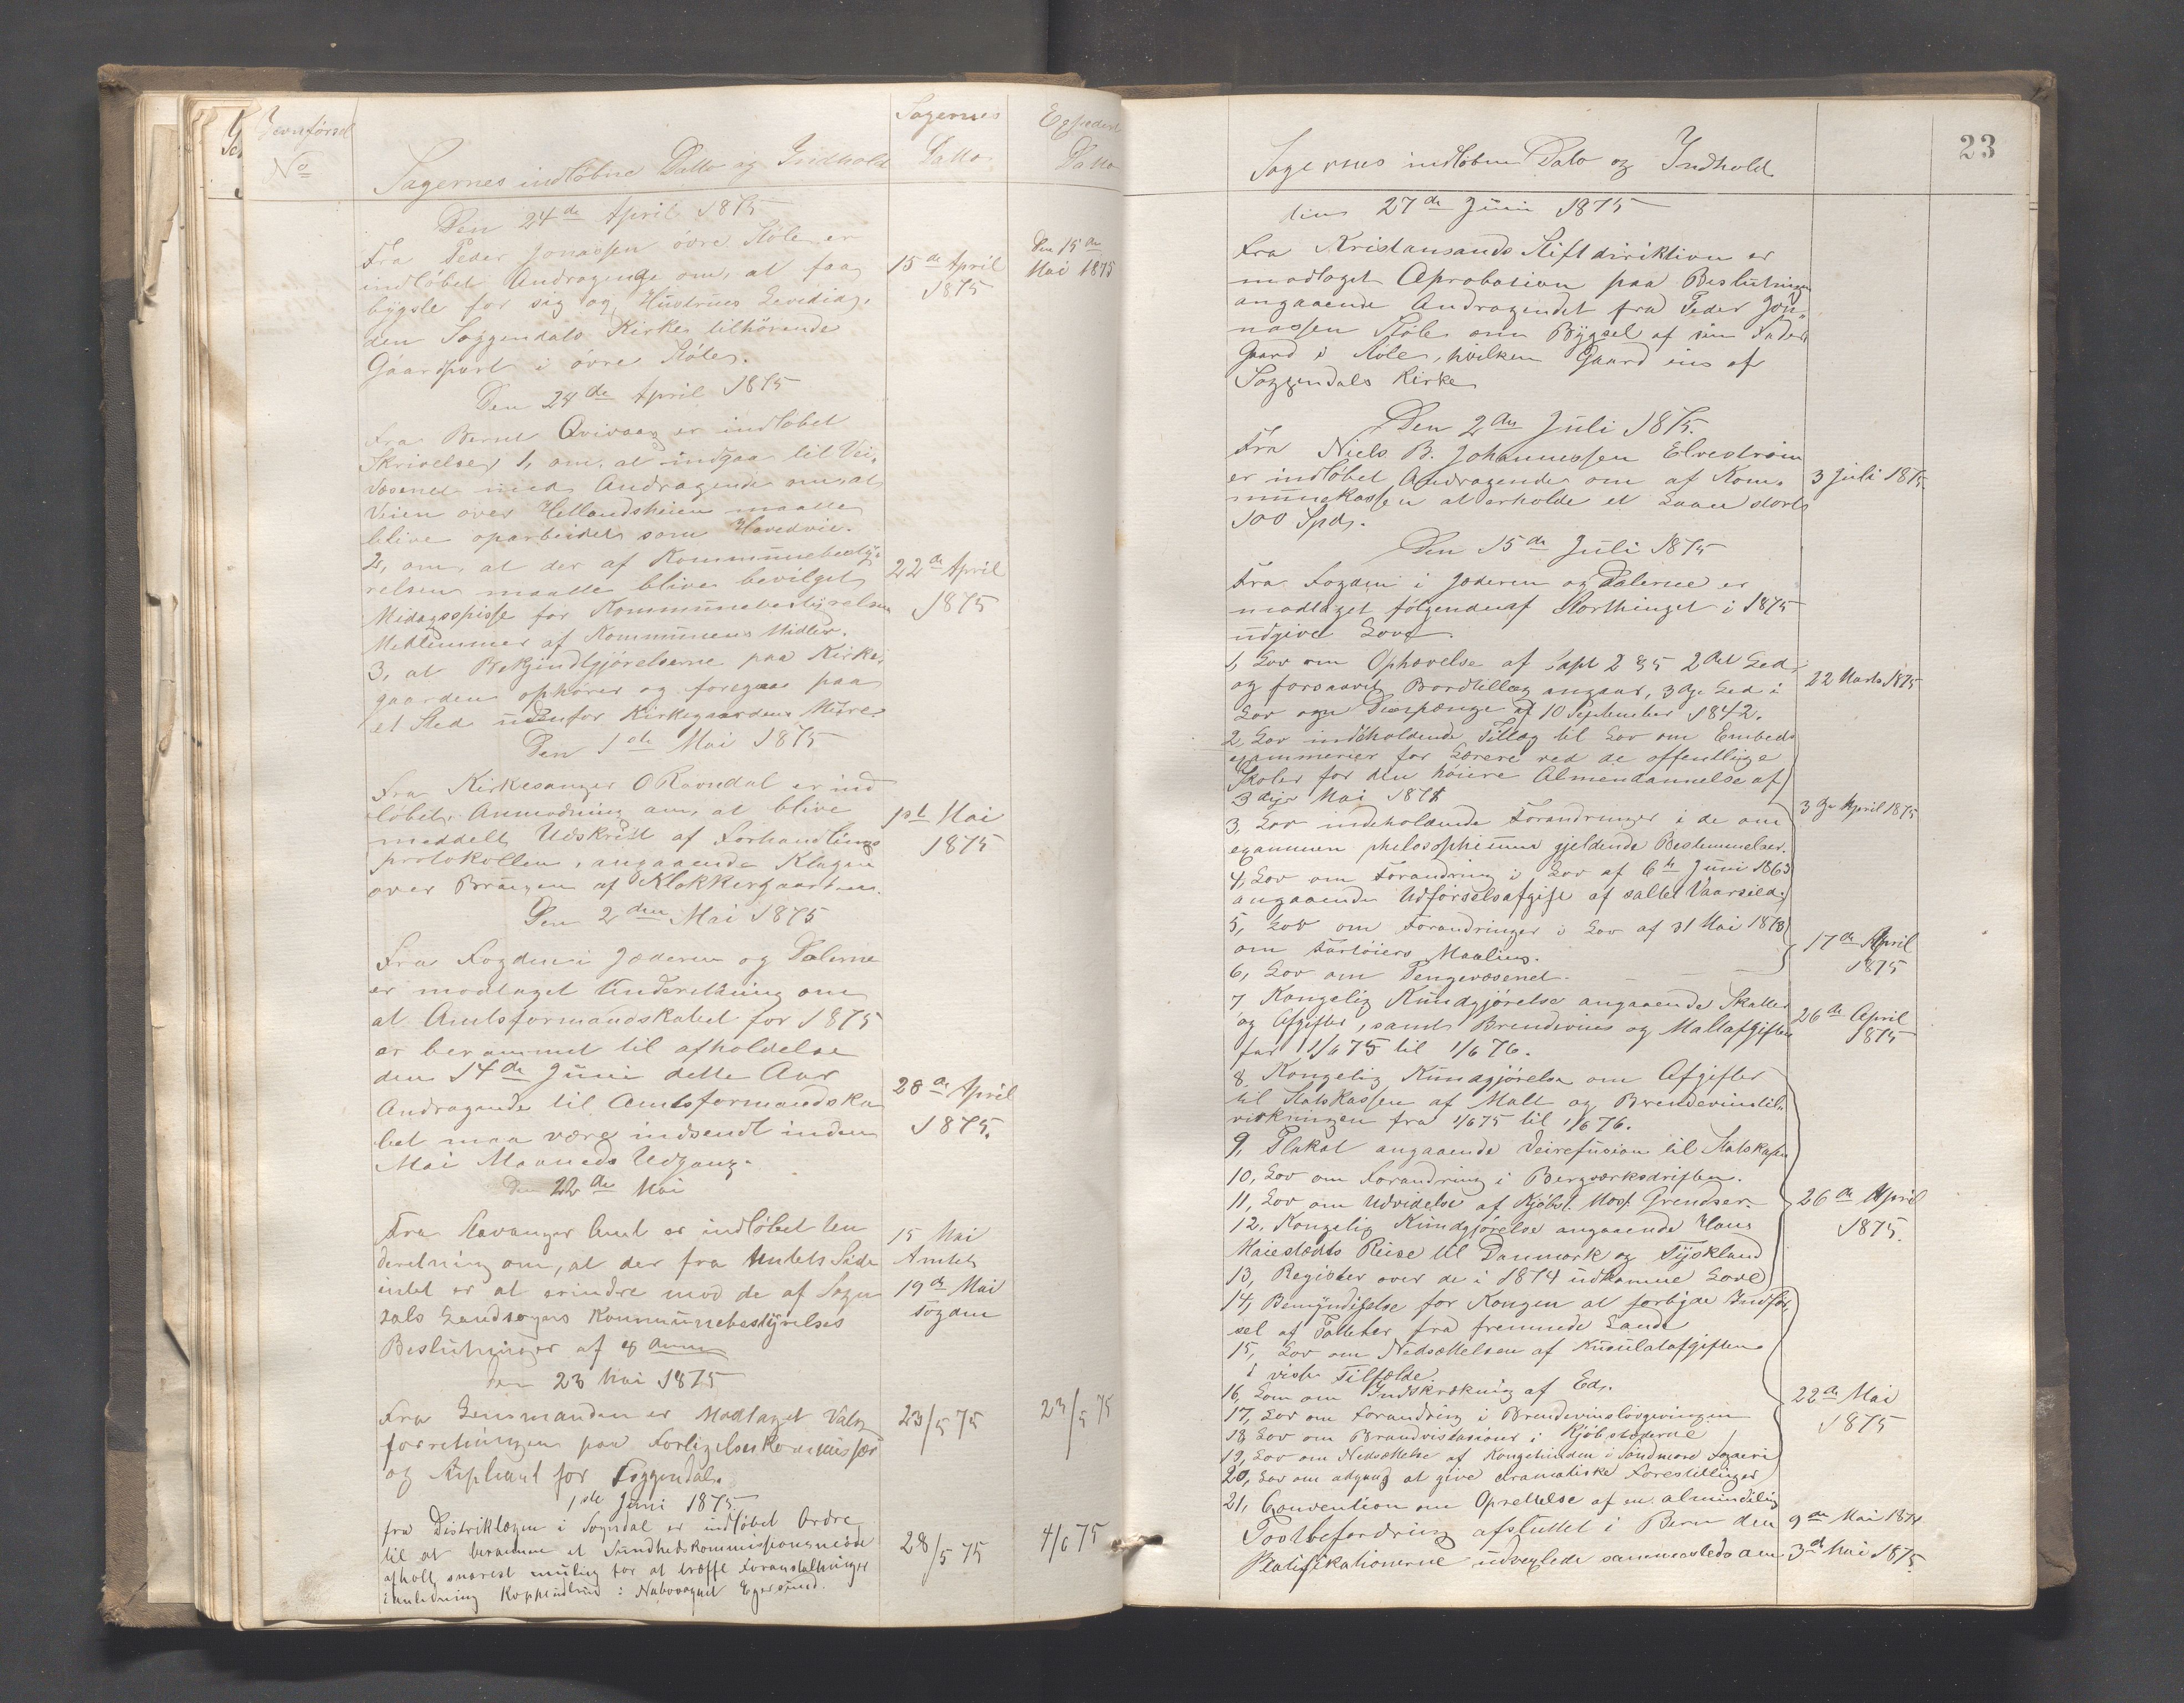 Jevnførsel
No
Sagernes indløbne Datto og Indhold
Sagernes Datto
Expedert Datto
Den 24de April 1875
Fra Peder Jonassen øvre Støle er
indløbet Andragende om, at faa
bygsle for sig og Hustrues Levedid,
den Soggendals Kirke tilhørende
Gaardpart i øvre Støle.
15de April
1875
Den 15de
Mai 1875
Den 24de April 1875
Fra Bernt Qvivaag er indløbet
Skrivelse, 1, om, at indgaa til Vei-
væsenet med Andragende om, at
Veien over Hellandsheien maatte
blive oparbeidet som Hovedvei.
2, om, at der af Kommunebesty-
relsen maatte blive bevilget
Midagsspisse for Kommunebestyrelsens
Medlemmer af Kommunens Midler.
3, at Bekjendtgjørelserne paa Kirke-
gaarden ophører og foregaa paa
et Sted udenfor Kirkegaardens Mure.
22de April
1875
Den 1ste Mai 1875
Fra Kirkesanger O Ravndal er ind
løbet Anmodning om, at blive
meddelt Udskrift af Forhandlings
protokollen, angaaende Klagen
over Brugen af Klokkergaarden.
1ste Mai
1875
Den 2den Mai 1875
Fra Fogden i Jæderen og Dalerne
er modtaget Underetning om
at Amtsformandskabet for 1875
er berammet til afholdelse
den 14de Juni dette Aar
Andragende til Amtsformandska
bet maa være indsendt inden
Mai Maaneds Udgang.
28de April
1875.
Den 22de Mai
Fra Stavanger Amt er indløbet Un
deretning om, at der fra Amtets Side
intet er at erindre mod de af Sogn
dals Landsogns Kommunebestyrelses
Beslutninger af
15 Mai
Amtet
19de Mai
Fogden
den 23 Mai 1875
Fra Lensmanden er Modtaget Valg
forretningen paa Forligelseskommissær
og Supleant for Soggendal.
23/5 75
23/5 75
1ste Juni 1875.
fra Distriktlægen i Sogndal er indløbet Ordre
til at beramme et Sundhedskommissionsmøde
afholt snarest mulig for at træffe Foranstaltninger
i anledning Koppeudbrud i Nabosognet Egersund.
28/5 75
4/6 75
23
Sagernes indløbne Dato og Indhold
den 27de Juni 1875
Fra Kristiansands Stiftdirektion er
modtaget Aprobation paa Beslutningen
angaaende Andragendet fra Peder Jon-
nassen Støle om Bygsel af sin Faders
Gaard i Støle, hvilken Gaard eies af
Soggendals Kirke
Den 2den Juli 1875.
Fra Niels B. Johannessen Elvestrøm
er indløbet Andragende om af Kom-
munekassen at erholde et Laan stort
100 Spd.
3 Juli 1875
Den 15de Juli 1875
Fra Fogden i Jæderen og Dalerne er
modtaget følgende af Storthinget i 1875
udgivet Love.
1, Lov om Ophævelse af Capt 2 § 5 2det Led
og forsaavidt Bordtillæg angaar, 3die Led i
Lov om 10 September 1842.
22 Marts 1875
2, Lov indeholdende Tillæg til Lov om Embeds
exammener for Lærere ved de offentlige
Skoler for den høiere Almendannelse af
3die Mai 1871
3, Lov indeholdende Forandringer i de om
exammen philosophicum gjeldende Bestemmelser.
4, Lov om Forandring i Lov af 6te Juni 1863
angaaende Udførselsafgift af saltet Vaarsild.
3die April 1875
5, Lov om Forandringer i Lov af 31 Mai 1873
om Fartøiers Maaling.
6, Lov om Pengevæsenet.
17de April
1875
7 Kongelig Kundgjørelse angaaende Skatter
og Afgifter, samt Brendeviins og Maltafgiften
for 1/6 75 til 1/6 76.
26de April
1875
8, Kongelig Kundgjørelse om Afgifter
til Statskassen af Malt og Brendeviinstil-
virkningen fra 1/6 75 til 1/6 76.
9, Plakat angaaende Veirefusion til Statskassen
10, Lov om Forandring i Bergværksdriften.
11, Lov om Udvidelse af Kjøbst. Moss Grendser.
12, Kongelig Kundgjørelse angaaende Hans
Maiestædts Reise til Danmark og Tyskland
13, Register over de i 1874 udkomne Love
26de April
1875.
14, Bemyndigelse for Kongen at forbyde Indfør
sel af Potteter fra fremmede Lande
15, Lov om Nedsættelsen af Kusulatafgiften
i visse Tilfælde.
16, Lom om Indskrækning af Ed.
17, Lov om Forandring i Brendeviinslovgivningen
18 Lov om Brandvistasioner i Kjøbstæderne
19, Lov om Nedsættelse af Kongetienden i Søndmøre Fogderi
20, Lov om adgang at give dramatiske Forestillinger
22de Mai
1875
21, Convention om Oprettelse af en almindelig
Postbefordring afsluttet i Bern den
Ratifikationerne udvexlede sammesteds den
9de Mai 1874
3die Mai 1875